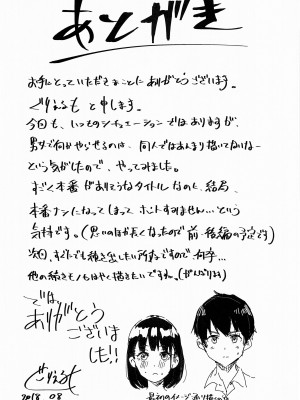 あとがき
お手にとっていただきまことにありがとうございます。
ぐりえるもと申します。
今回も、いつものシチュエーションではありますが、
男女で何かやらせるのは、同人ではあんまり描いてないなー
という気がしたので、やってみました。
すごく本番がありそうなタイトルなのに、結局、
本番ナシになってしまってホントすみません…という
気持です。(思いのほか長くなったので前・後編の予定です)
次回、すぐにでも続き出したい所存ですので何卒…
他の続きモノもはやく描きたいですね。(がんばります)
では
ありがとう
ございま
した!!
ぐりえるも
2018 08